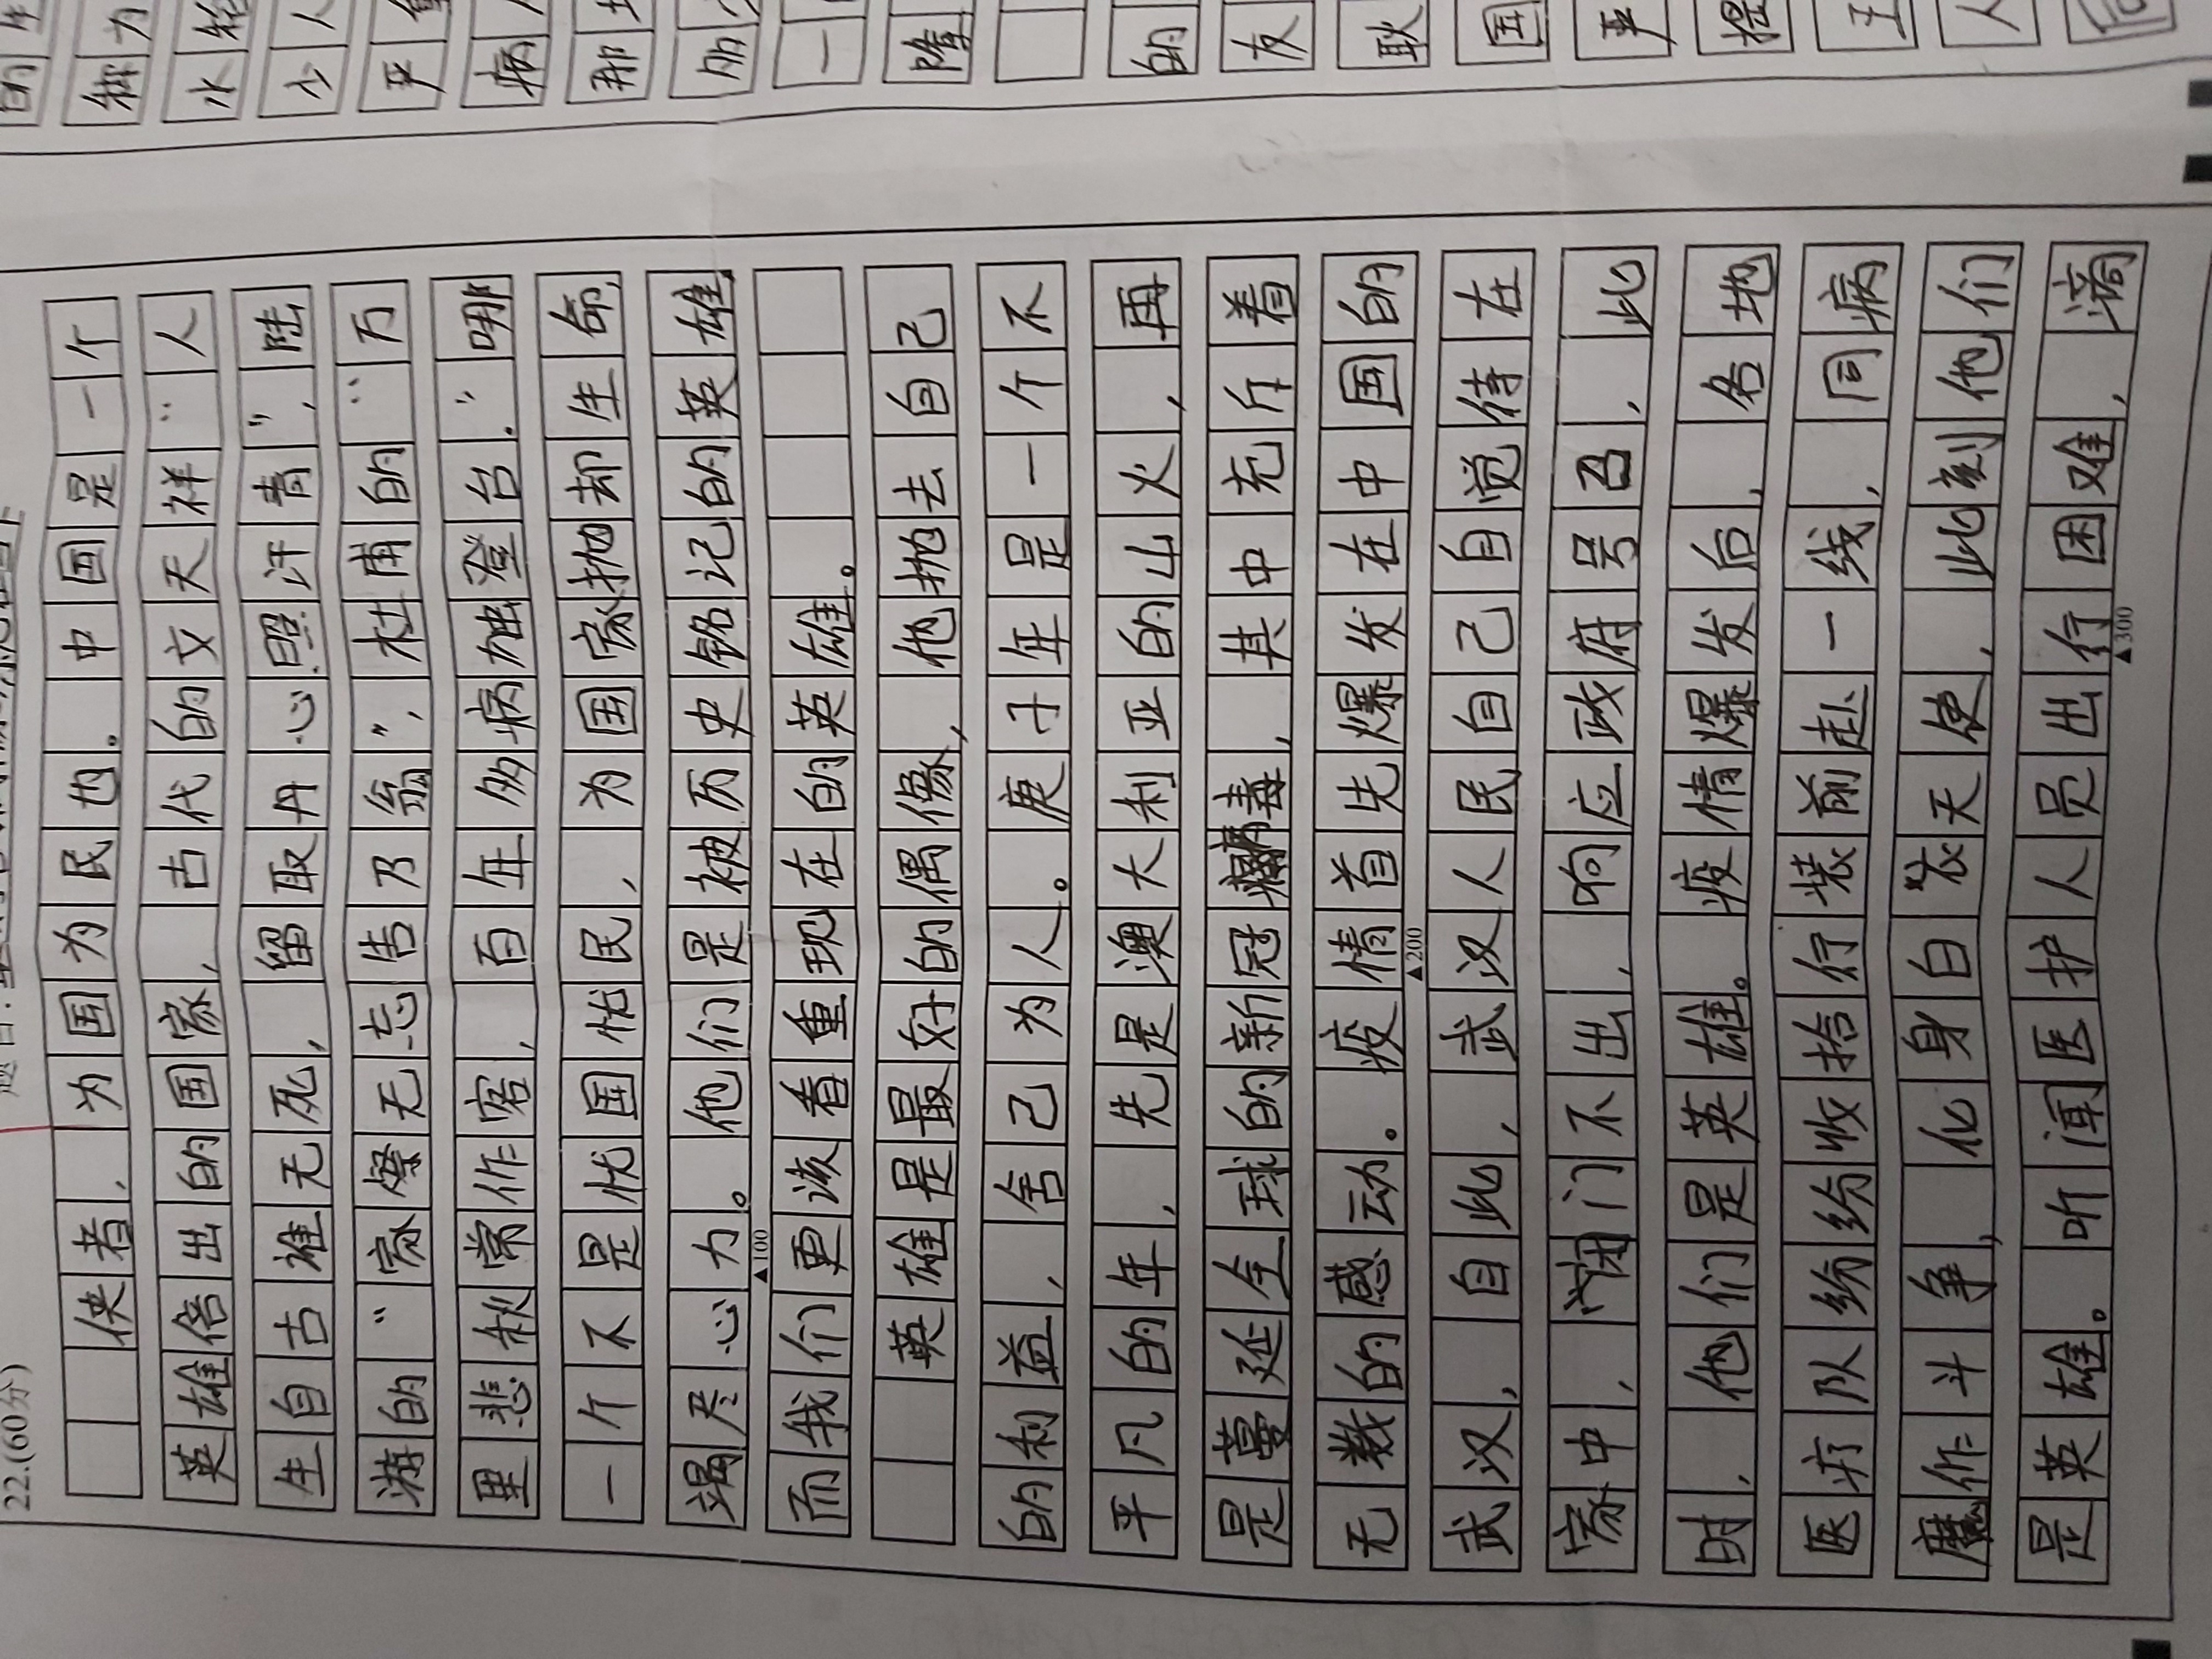 22.(60分)
侠者，为国为民也。中国是一个
英雄倍出的国家，古代的文天祥“人
生自古谁无死，留取丹心照汗青”，陆
游的“家祭无忘告乃翁”，杜甫的“万
里悲秋常作客，百年多病独登台。”哪
一个不是忧国忧民，为国家抛却生命，
竭尽心力。他们是被历史铭记的英雄
▲100
而我们更该看重现在的英雄。
英雄是最好的偶像，他抛去自己
的利益，舍己为人。庚子年是一个不
平凡的年，先是澳大利亚的山火，再
是蔓延全球的新冠病毒，其中充斥着
无数的感动。疫情首先爆发在中国的
▲200
武汉，自此，武汉人民自己自觉待在
家中，闭门不出，响应政府号召，此
时，他们是英雄。疫情爆发后，名地
医疗队纷纷收拾行装前赴一线，同病
魔作斗争，化身白衣天使，此刻他们
是英雄。听闻医护人员出行困难，滴
▲300